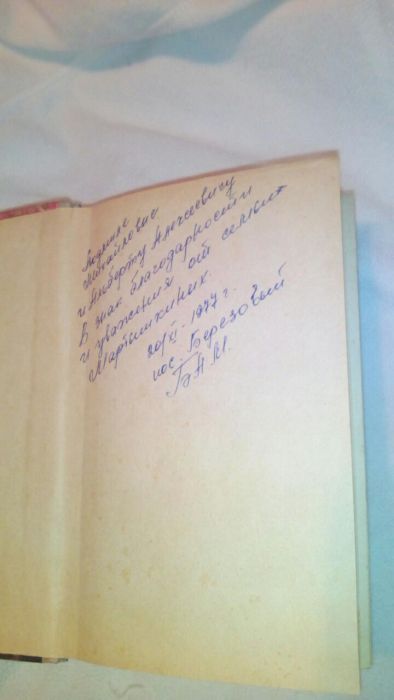 Людмиле
Михайловне
и Альберту Алексеевичу
В знак благодарности
и уважения от семьи
Мартышкиных.
20/XI-1977 г.
пос. Березовый
БАМ.